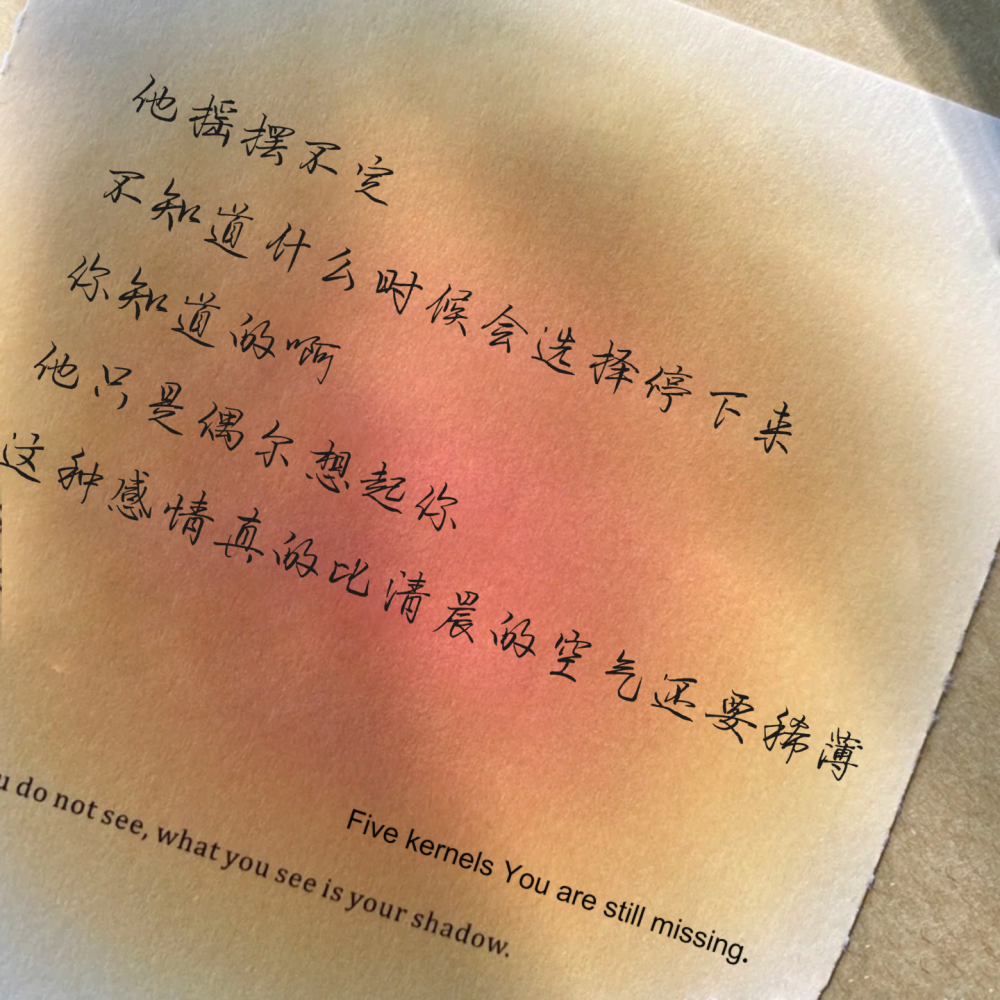 他摇摆不定
不知道什么时候会选择停下来
你知道的啊
他只是偶尔想起你
这种感情真的比清晨的空气还要稀薄
Five kernels You are still missing.
do not see, what you see is your shadow.